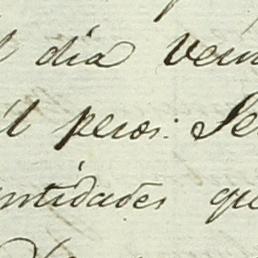 l dia vein
il pesos: Se
ntidades que